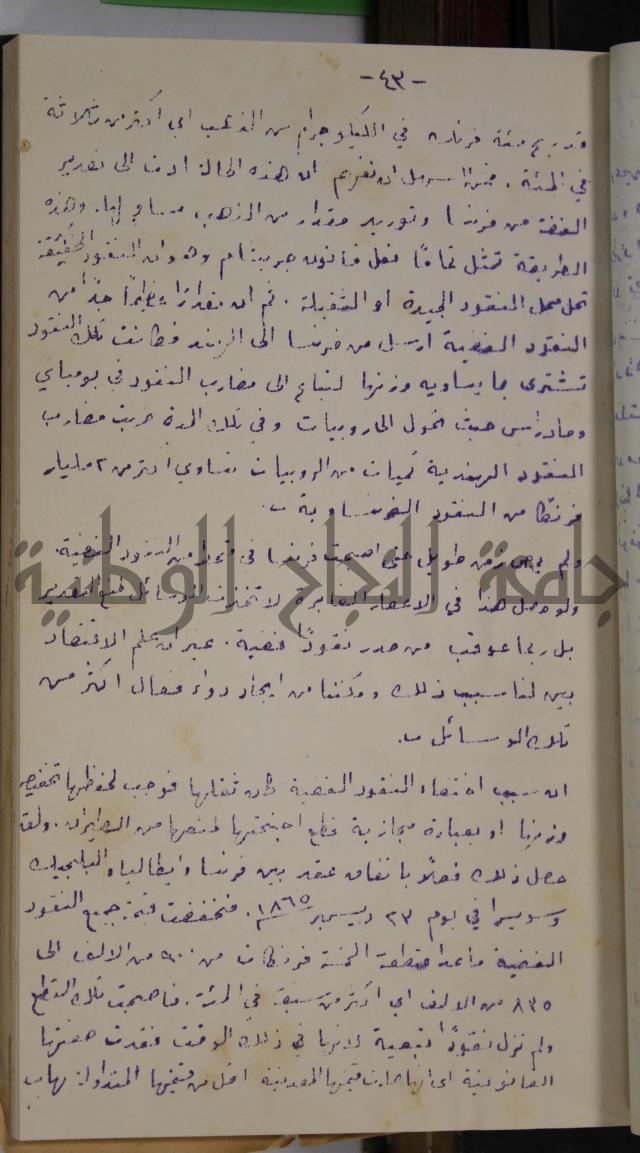 -٤٣-
قد ربح مئة فرنك في الكيلوجرام من الذهب اي اكثر من ثلاثة
في المئة . فمن السهل ان نفهم ان هذه الحالة ادت الى تصدير
الفضة من فرنسا وتوريد مقدار من الذهب مساوٍ لها. وهذه
الطريقة تمثل تمامًا فعل قانون جريشام وهو ان النقود الخفيفة
تحل محل النقود الجيدة او الثقيلة . ثم ان مقدارًا عظيمًا جدًا من
النقود الفضية ارسل من فرنسا الى الهند فكانت تلك النقود
تشترى بما يساويه وزنها لتباع الى مضارب النقود في بومباي
ومادراس حيث تحول الى روبيات وفي تلك المدة ضربت مضارب
النقود الهندية كميات من الروبيات تساوي اكثر من ٢ مليار
فرنكًا من النقود الفرنساوية
ولم يمض زمن طويل حتى اصبحت فرنسا في من النقود الفضية.
ولو حصل هذا في الاعصار الغابرة لاتخذت الوسائل لمنع التصدير
بل ربما عوقب من صدر نقودًا فضية . غير ان علم الاقتصاد
بين لنا سبب ذلك ومكننا من ايجاد دواء فعال اكثر من
تلك الوسائل
ان سبب اختفاء النقود الفضية كان ثقلها فوجب لحفظها تخفيض
وزنها او بعبارة مجازية قطع اجنحتها لمنعها من الطيران. ولقد
حصل ذلك فعلًا باتفاق عقد بين فرنسا وايطاليا والبلجيك
وسويسرا في يوم ٢٣ ديسمبر ١٨٦٥. فخفضت قيمة جميع النقود
الفضية ماعدا قطعة الخمسة فرنكات من ٩٠٠ من الالف الى
٨٣٥ من الالف اي اكثر من سبعة في المئة. فاصبحت تلك القطع
ولم تزل نقودًا تبعية لانها في ذلك الوقت فقدت صفتها
القانونية اي انها صارت قيمتها المعدنية اقل من قيمتها المتداولة بها
جامعة النجاح الوطنية